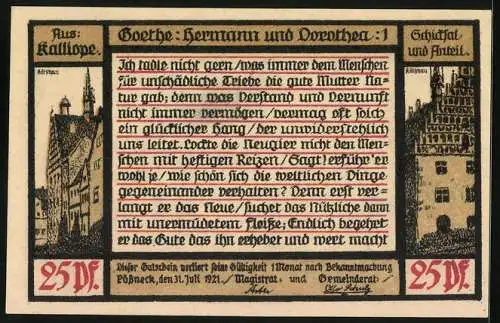 Aus:
Kalliope.
Goethe: Hermann und Dorothea: 1
Schicksal
und Anteil.
Ich tadle nicht gern/was immer dem Menschen
für unschädliche Triebe die gute Mutter Na-
tur gab; denn was Verstand und Vernunft
nicht immer vermögen/vermag oft solch
ein glücklicher Hang/der unwiderstehlich
uns leitet. Lockte die Neugier nicht den Men-
schen mit heftigen Reizen/Sagt! erführ' er
wohl je/wie schön sich die weltlichen Dinge
gegeneinander verhalten? Denn erst ver-
langt er das Neue/suchet das Nützliche dann
mit unermüdetem Fleiße; Endlich begehrt
er das Gute das ihn erhebet und wert macht
25 Pf.
Dieser Gutschein verliert seine Gültigkeit 1 Monat nach Bekanntmachung
Pößneck, den 31. Juli 1921. Magistrat und Gemeinderat:
25 Pf.